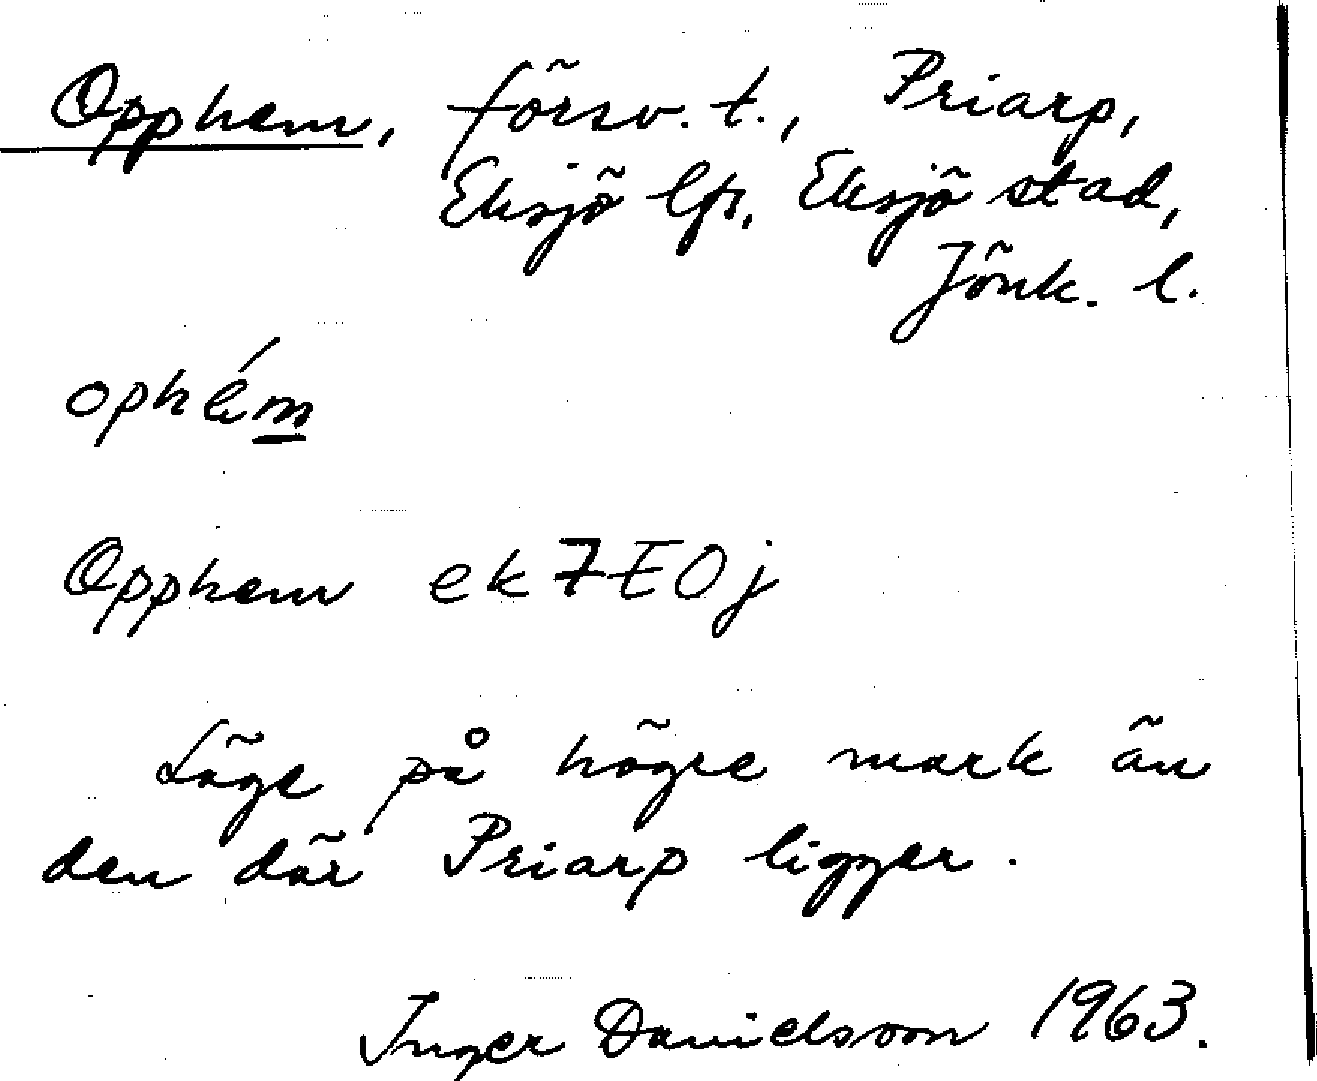 Opphem, försv. t., Priarp,
Eksjö lfs, Eksjö stad,
Jönk. l.
ophém
Opphem ek 7E0j
Läge på högre mark än
den där Priarp ligger.
Inger Danielsson 1963.